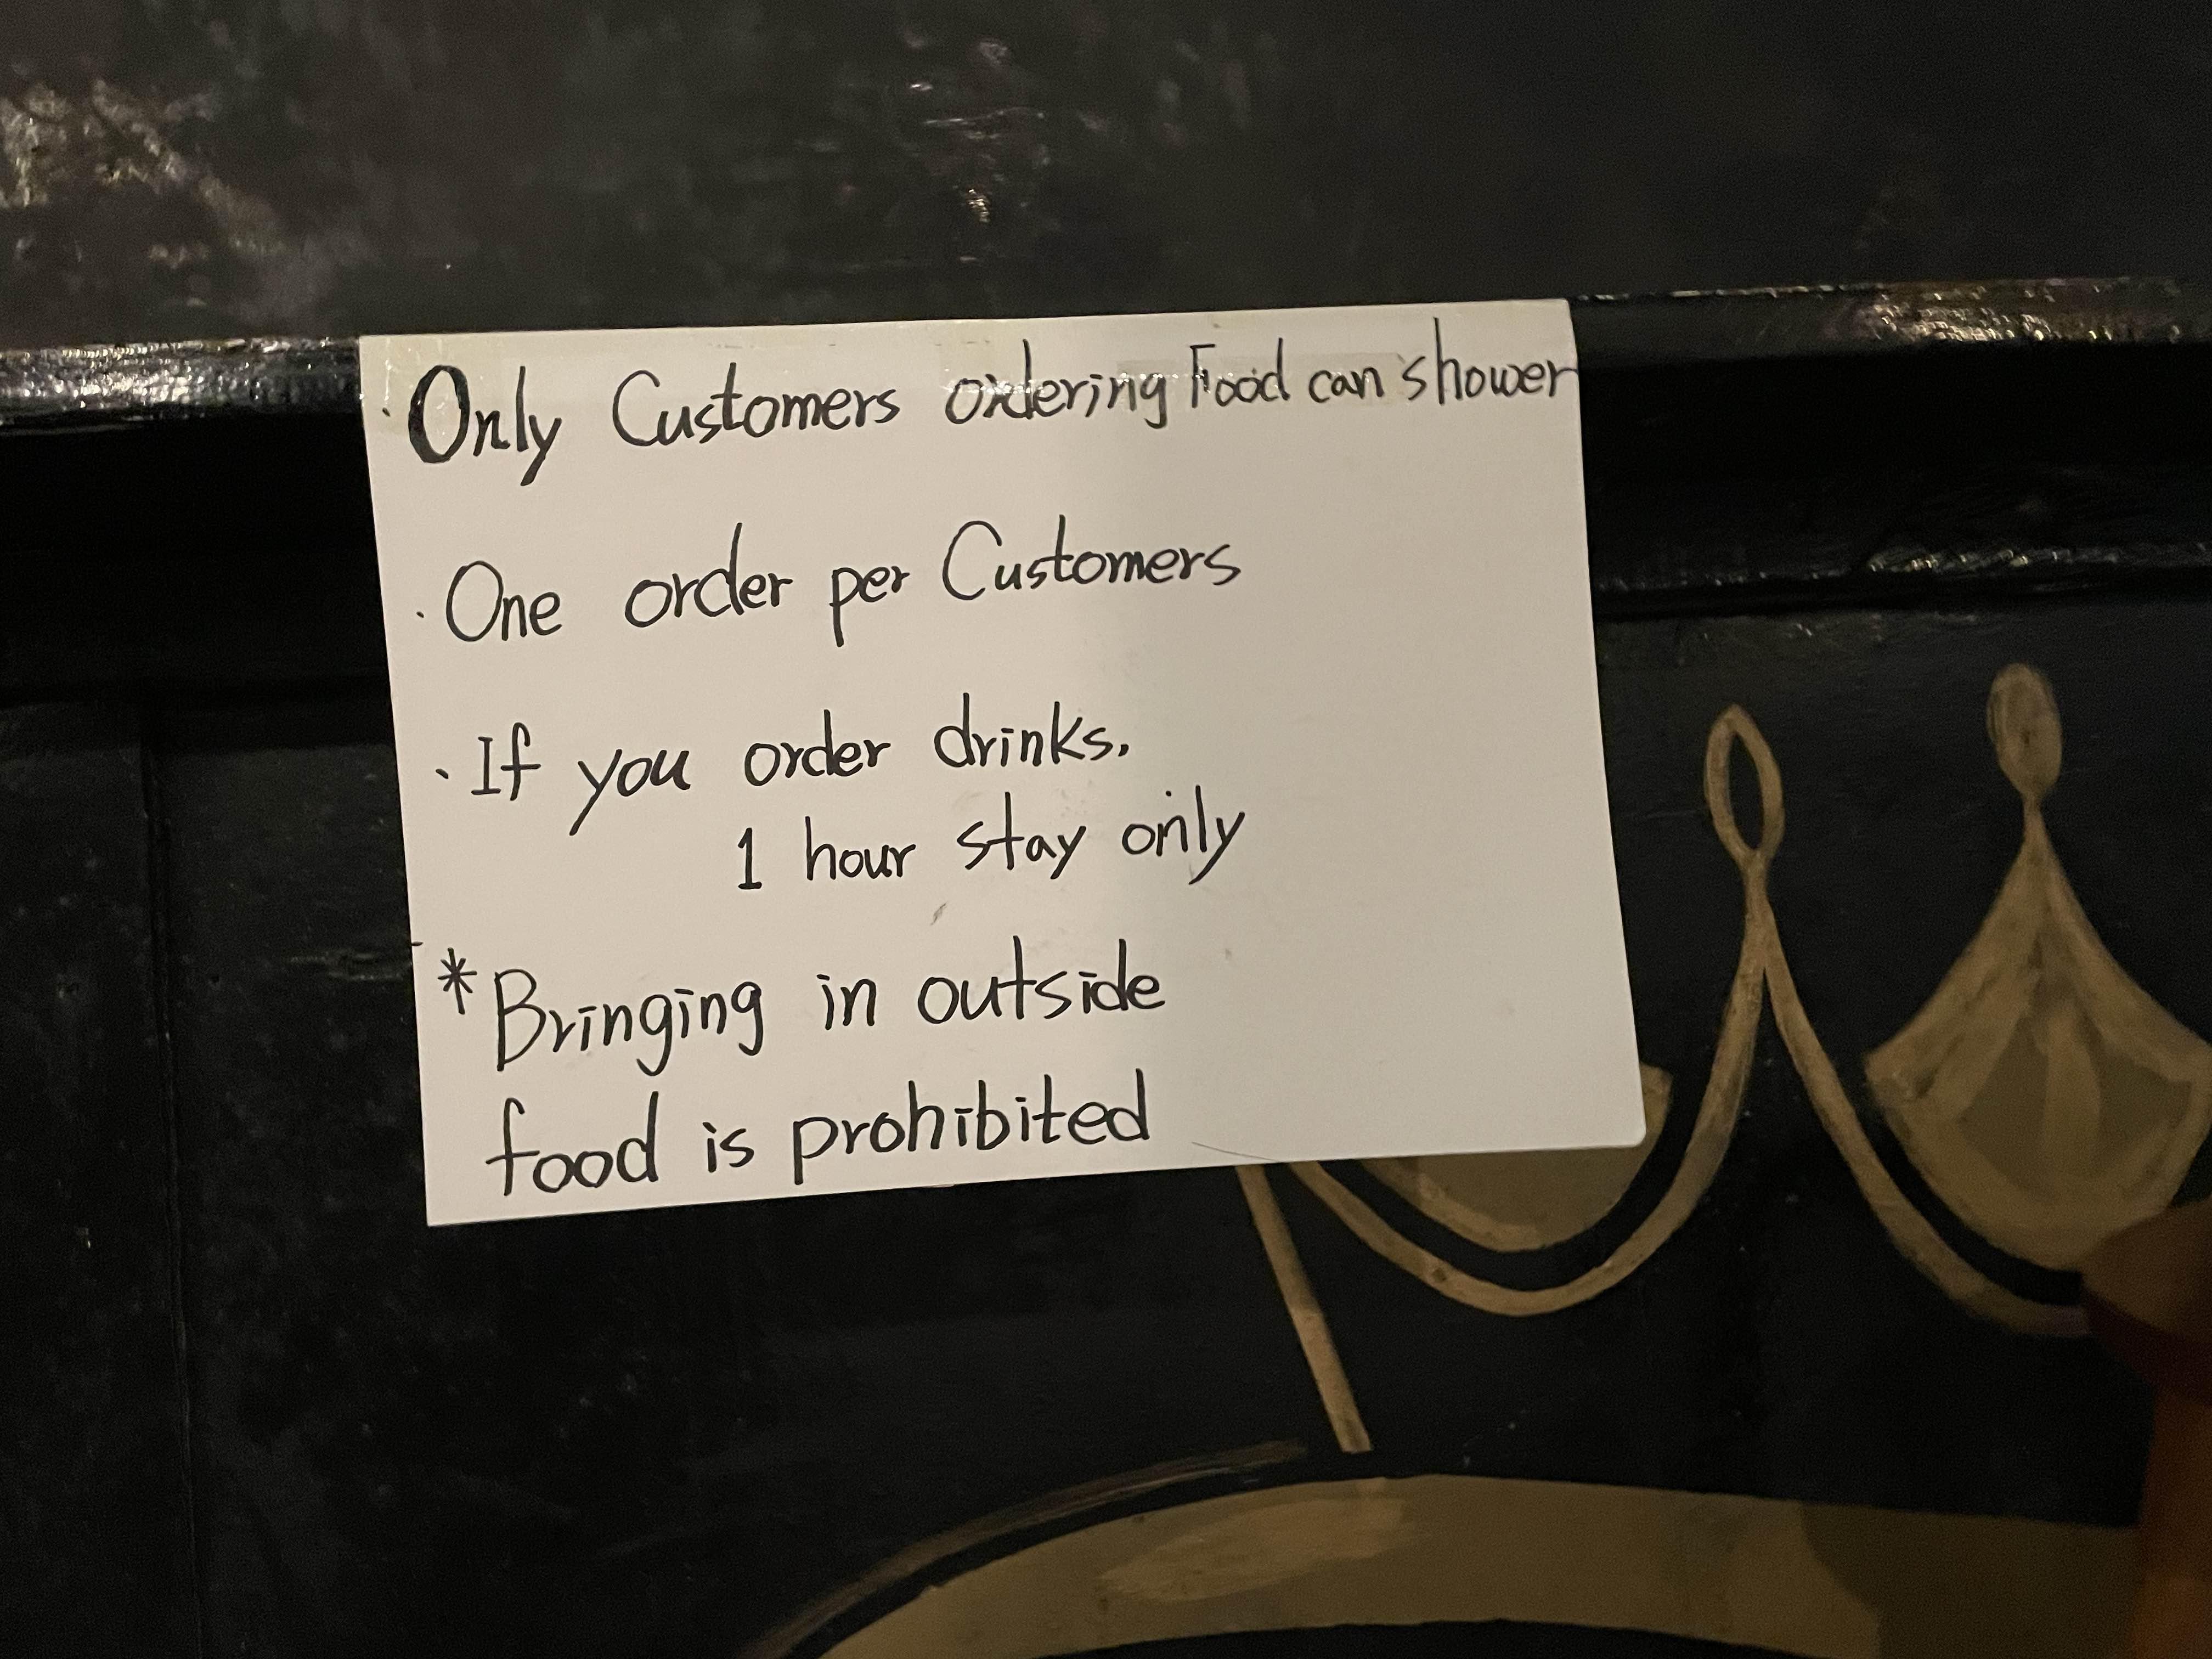 · Only Customers ordering Food can shower
· One order per Customers
· If you order drinks.
1 hour stay only
* Bringing in outside
food is prohibited